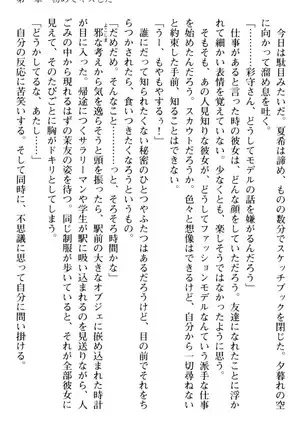 今日は駄目みたいだ。夏希は諦め、ものの数分でスケッチブックを閉じた。夕暮れの空
に向けて溜め息を吐く。
「彩守さん、どうしてモデルの話を嫌がるんだろう」
仕事があると言った時の彼女は、どんな顔をしていただろう。友達になれたのに、そん
な細かい表情を覚えていない。少なくとも、楽しそうではなかったと思う。
そもそも、あの人見知りな彼女が、どうしてファッションモデルなんていう派手な仕事
を始めたんだろう。スカウトだろうか。色々と想像はできるけど、自分から一切尋ねない
と約束した手前、知ることはできない。
「あー、もやもやするぅー！」
誰にだって知られたくない秘密のひとつやふたつはあるだろうけど、目の前でそれをち
らつかされたら、食いつきたくなろうというもの。
「だめだめ。そんなこと……っと、そろそろ時間かな」
邪な考えから気を逸らそうと頭を振ったら、駅前の大きなオブジェに嵌めこまれた時計
が目に入った。帰途につくサラリーマンや学生が駅に吸い込まれるのを見送りながら、人
ごみの中から現れるはずの茉友の姿を待つ。同じ制服が歩いていると、それが全部彼女に
見えて、そのたびごとに胸がドキリとしてしまう。
「どうかしてるなぁ、あたし……」
自分の反応に苦笑いする。そして同時に、不思議に思って自分に問い掛ける。